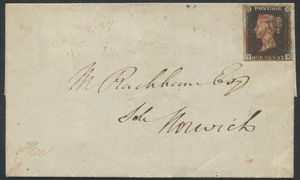 POSTAGE
ONE PENNY
M. Rackham Esq
Solr
Norwich